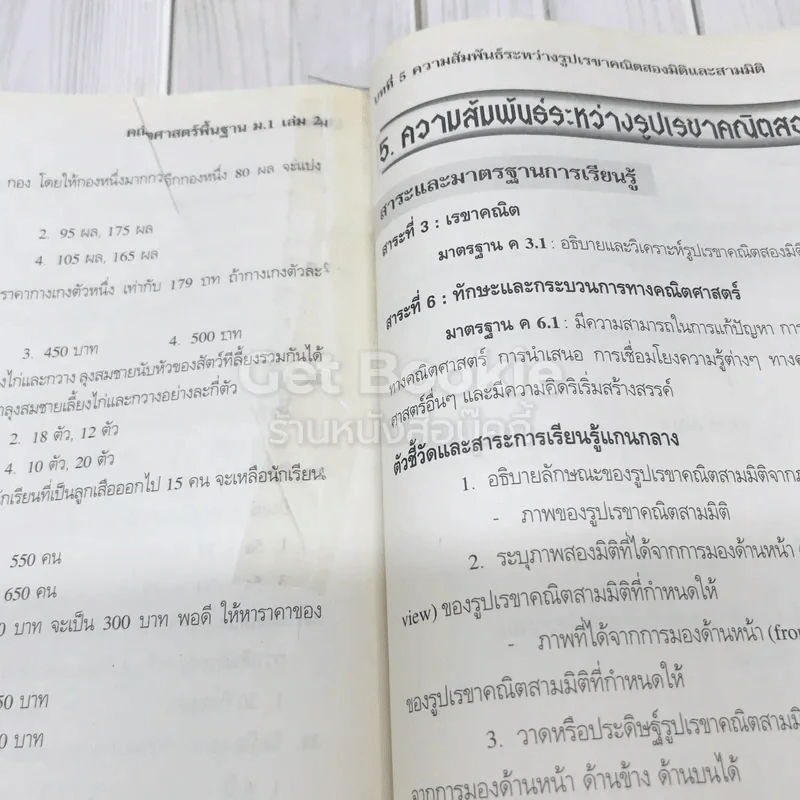 คณิตศาสตร์พื้นฐาน ม.1 เล่ม 2
กอง โดยให้กองหนึ่งมากกว่าอีกกองหนึ่ง 80 ผล จะแบ่ง
2. 95 ผล, 175 ผล
4. 105 ผล, 165 ผล
ราคากางเกงตัวหนึ่ง เท่ากับ 179 บาท ถ้ากางเกงตัวละ
3. 450 บาท 4. 500 บาท
งไก่และกวาง ลุงสมชายนับหัวของสัตว์ที่เลี้ยงรวมกันได้
าลุงสมชายเลี้ยงไก่และกวางอย่างละกี่ตัว
2. 18 ตัว, 12 ตัว
4. 10 ตัว, 20 ตัว
นักเรียนที่เป็นลูกเสือออกไป 15 คน จะเหลือนักเรียน
550 คน
650 คน
0 บาท จะเป็น 300 บาท พอดี ให้หาราคาของ
50 บาท
0 บาท
บทที่ 5 ความสัมพันธ์ระหว่างรูปเรขาคณิตสองมิติและสามมิติ
5. ความสัมพันธ์ระหว่างรูปเรขาคณิตสอ
สาระและมาตรฐานการเรียนรู้
สาระที่ 3 : เรขาคณิต
มาตรฐาน ค 3.1 : อธิบายและวิเคราะห์รูปเรขาคณิตสองมิติ
สาระที่ 6 : ทักษะและกระบวนการทางคณิตศาสตร์
มาตรฐาน ค 6.1 : มีความสามารถในการแก้ปัญหา การ
ทางคณิตศาสตร์ การนำเสนอ การเชื่อมโยงความรู้ต่างๆ ทางค
ศาสตร์อื่นๆ และมีความคิดริเริ่มสร้างสรรค์
ตัวชี้วัดและสาระการเรียนรู้แกนกลาง
1. อธิบายลักษณะของรูปเรขาคณิตสามมิติจากภ
- ภาพของรูปเรขาคณิตสามมิติ
2. ระบุภาพสองมิติที่ได้จากการมองด้านหน้า (
view) ของรูปเรขาคณิตสามมิติที่กำหนดให้
- ภาพที่ได้จากการมองด้านหน้า (fron
ของรูปเรขาคณิตสามมิติที่กำหนดให้
3. วาดหรือประดิษฐ์รูปเรขาคณิตสามมิ
จากการมองด้านหน้า ด้านข้าง ด้านบนได้
Get Bookie
ร้านหนังสือบุ๊คกี้